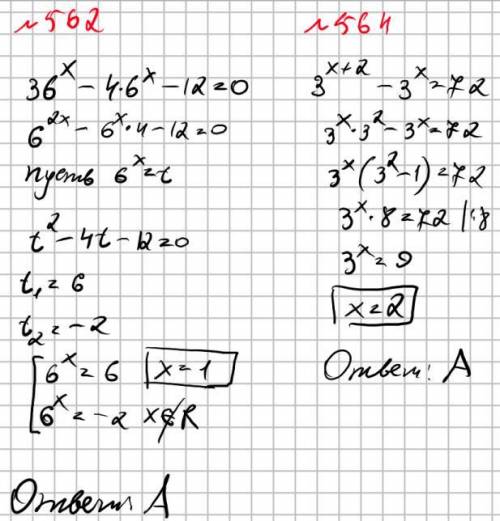 №562
36^x - 4·6^x - 12=0
6^2x - 6^x·4 - 12=0
пусть 6^x=t
t^2 - 4t - 12=0
t₁ = 6
t₂ = -2
6^x = 6 x = 1
6^x = -2 x∉R
Ответ: А
№564
3^x+2 - 3^x = 72
3^x·3^2 - 3^x = 72
3^x(3^2-1) = 72
3^x·8 = 72 |:8
3^x = 9
x = 2
Ответ: А